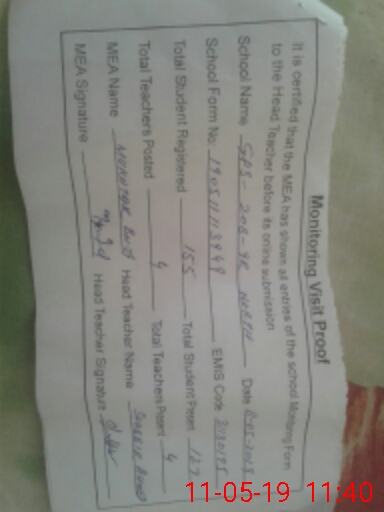 Monitoring Visit Proof
It is certified that the MEA has shown all entries of the school Monitoring Form
to the Head Teacher before its online submission
School Name GPS- 208-9R NORTH Date
School Form No: EMIS Code
Total Student Registered 155 Total Student Present 127
Total Teachers Posted 4 Total Teachers Present 4
MEA Name Head Teacher Name
MEA Signature Head Teacher Signature
11-05-19 11:40